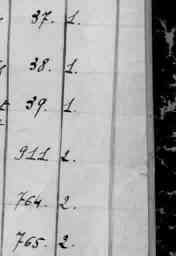 37. 1.
38. 1.
39. 1.
911 2.
764. 2.
765. 2.